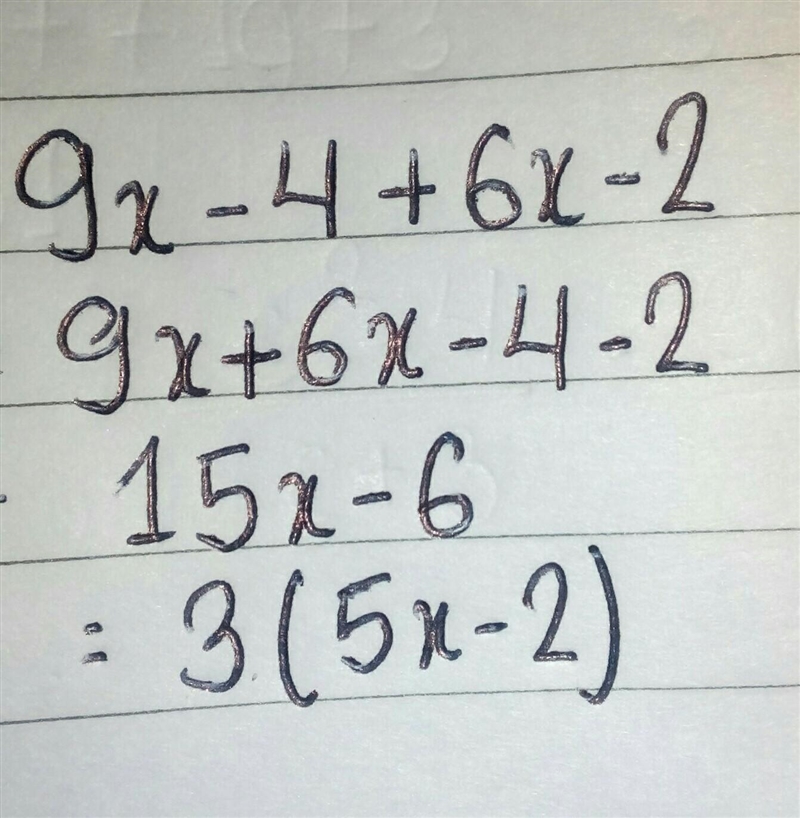 9x - 4 + 6x - 2
9x + 6x - 4 - 2
15x - 6
= 3(5x - 2)